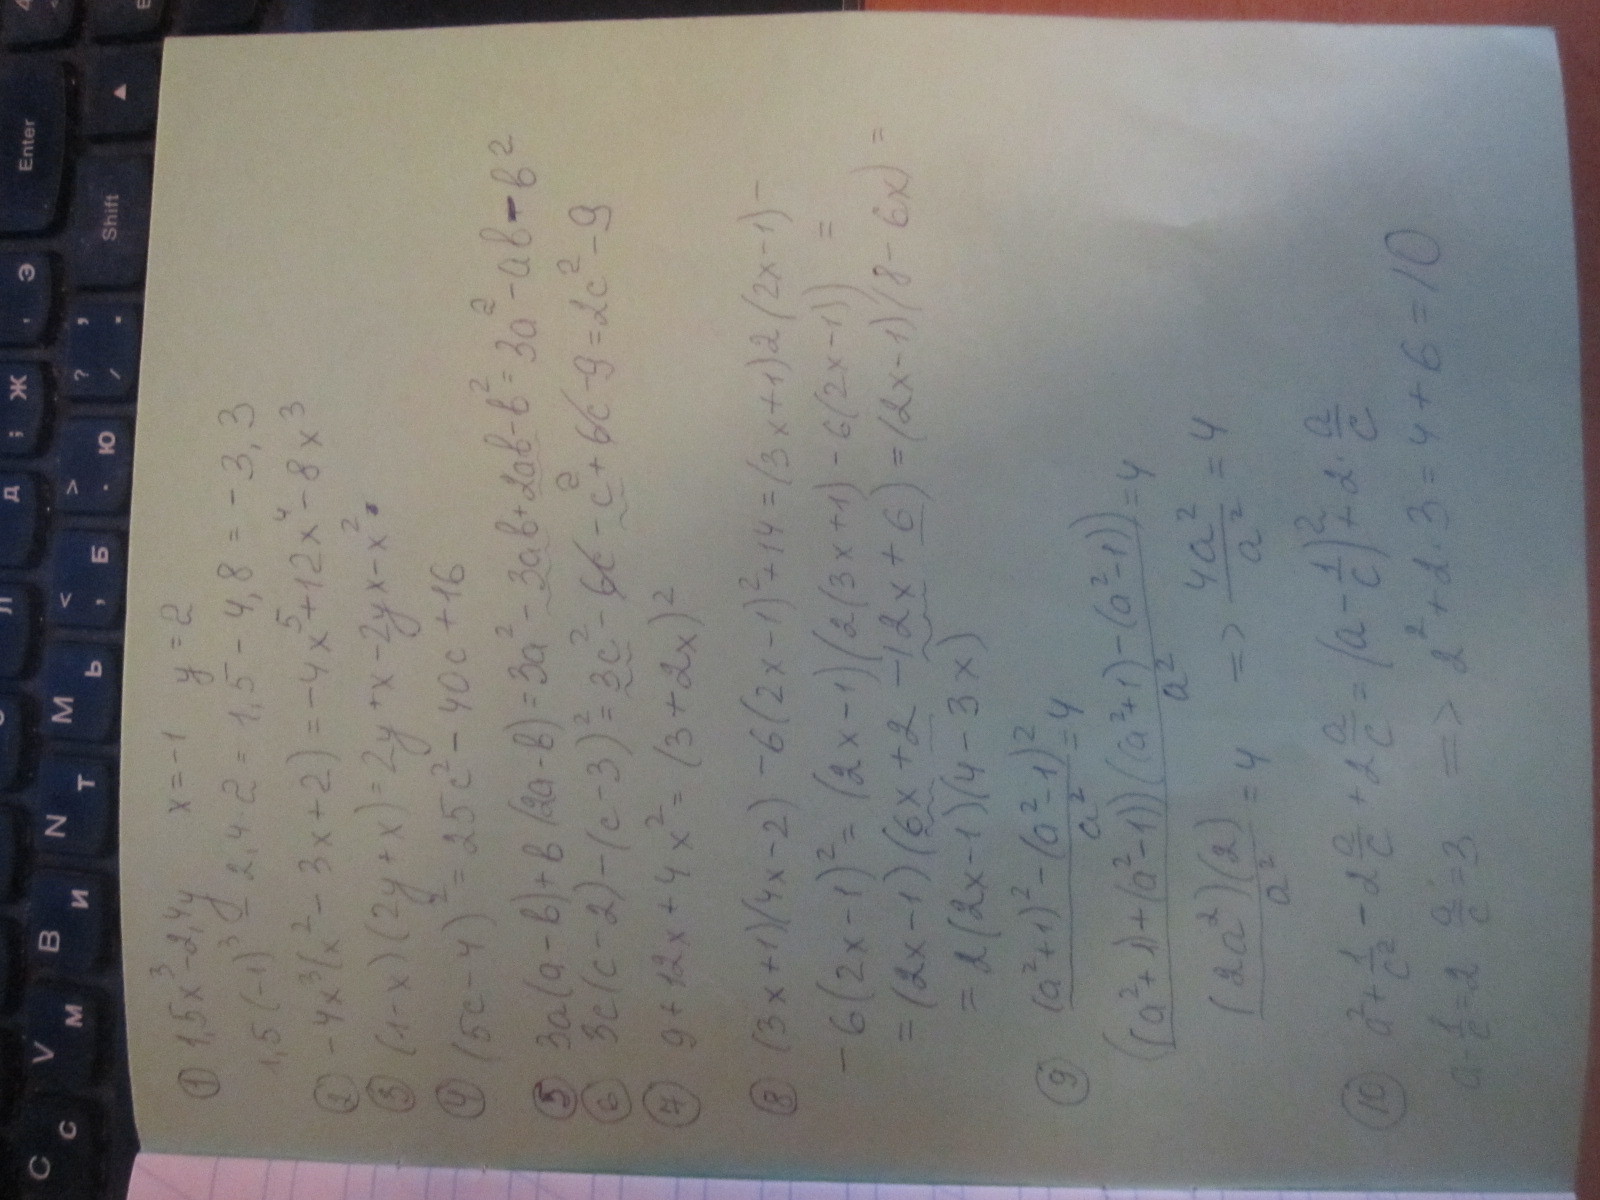 ① 1,5x³-2,4y x=-1 y=2
1,5(-1)³ - 2,4·2 = 1,5 - 4,8 = -3,3
② -4x³(x² - 3x + 2) = -4x⁵ + 12x⁴ - 8x³
③ (1-x)(2y+x) = 2y + x - 2yx - x².
④ (5c-4)² = 25c² - 40c + 16
⑤ 3a(a-b)+b(2a-b) = 3a² - 3ab + 2ab - b² = 3a² - ab - b²
⑥ 3c(c-2)-(c-3)² = 3c² - 6c - c² + 6c - 9 = 2c² - 9
⑦ 9+12x+4x² = (3+2x)²
⑧ (3x+1)(4x-2) - 6(2x-1)² + 14 = (3x+1)2(2x-1) -
- 6(2x-1)² = (2x-1)(2(3x+1) - 6(2x-1)) =
= (2x-1)(6x+2 - 12x + 6) = (2x-1)(8-6x) =
= 2(2x-1)(4-3x)
⑨ (a²+1)² - (a²-1)² / a² = 4
((a²+1)+(a²-1))((a²+1)-(a²-1)) / a² = 4
(2a²)(2) / a² = 4 => 4a² / a² = 4
⑩ a² + 1/c² - 2 a/c + 2 a/c = (a - 1/c)² + 2· a/c
a - 1/c = 2 a/c = 3 => 2² + 2·3 = 4 + 6 = 10
Enter
Shift
Э
Ж ;
Д
Л
? /
> . Ю
< , Б
M Ь
T
N И
B
V М
C С